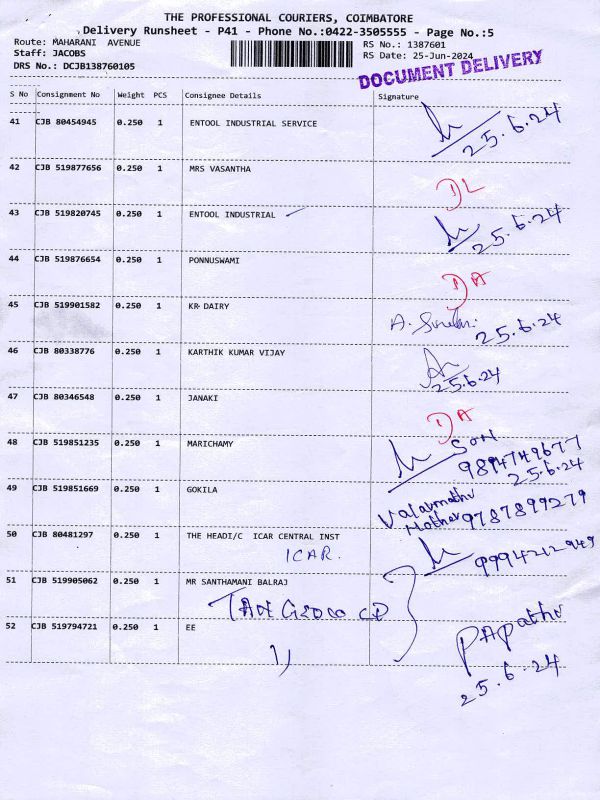 THE PROFESSIONAL COURIERS, COIMBATORE
Delivery Runsheet - P41 - Phone No.:0422-3505555 - Page No.:5
Route: MAHARANI AVENUE RS No.: 1387601
Staff: JACOBS RS Date: 25-Jun-2024
DRS No.: DCJB138760105
DOCUMENT DELIVERY
S No Consignment No Weight PCS Consignee Details Signature
41 CJB 80454945 0.250 1 ENTOOL INDUSTRIAL SERVICE
25.6.24
42 CJB 519877656 0.250 1 MRS VASANTHA
DL
43 CJB 519820745 0.250 1 ENTOOL INDUSTRIAL
25.6.24
44 CJB 519876654 0.250 1 PONNUSWAMI
DA
45 CJB 519901582 0.250 1 KR DAIRY
25.6.24
46 CJB 80338776 0.250 1 KARTHIK KUMAR VIJAY
25.6.24
47 CJB 80346548 0.250 1 JANAKI
DA
48 CJB 519851235 0.250 1 MARICHAMY
SON
9894749677
25.6.24
49 CJB 519851669 0.250 1 GOKILA
Valarmathi
Mother 9787899279
50 CJB 80481297 0.250 1 THE HEADI/C ICAR CENTRAL INST
ICAR.
9994212949
51 CJB 519905062 0.250 1 MR SANTHAMANI BALRAJ
52 CJB 519794721 0.250 1 EE
PAPathi
25.6.24